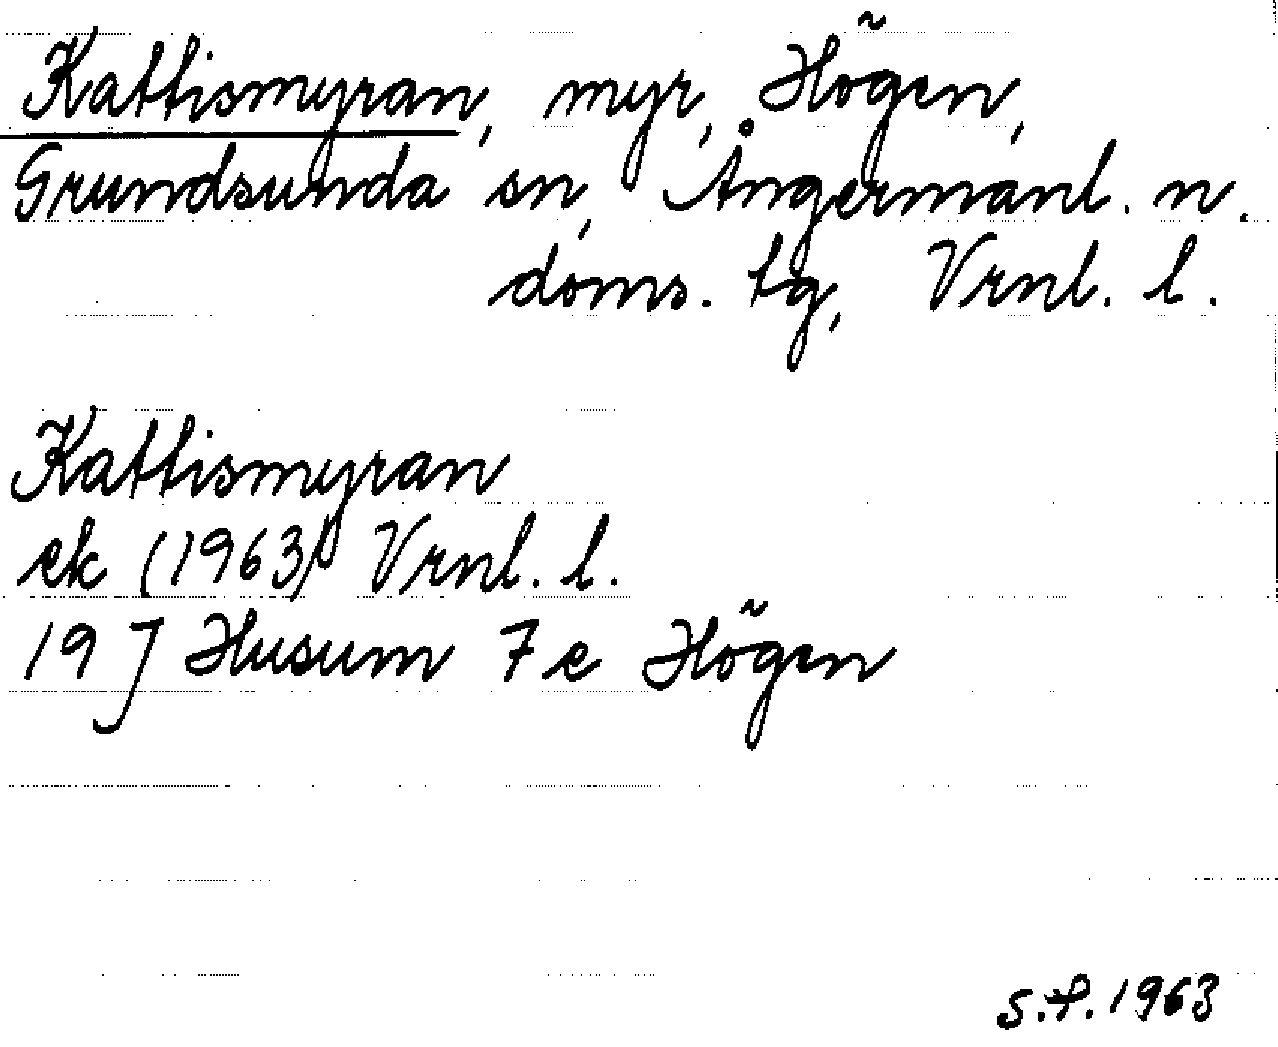 Kattismyran, myr, Högen,
Grundsunda sn, Ångermanl. n.
doms. tg, Vrnl. l.
Kattismyran
ek (1963) Vrnl. l.
19 J Husum 7 e Högen
S.F. 1963